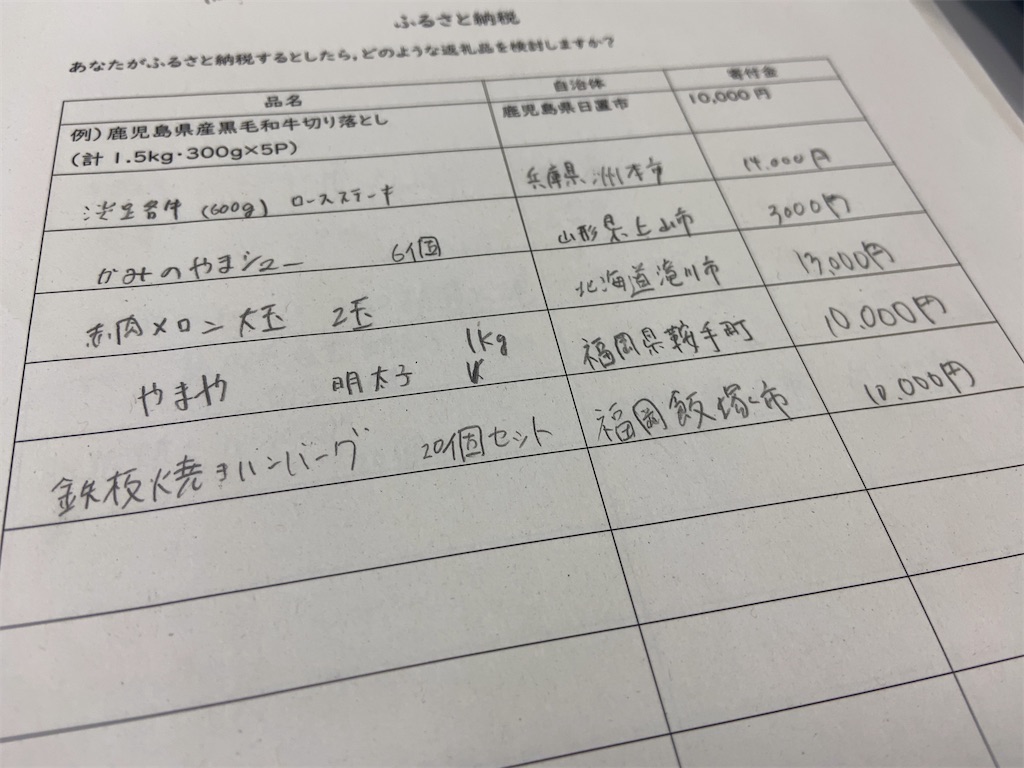 ふるさと納税
あなたがふるさと納税するとしたら,どのような返礼品を検討しますか?
品名 自治体 寄付金
例)鹿児島県産黒毛和牛切り落とし 鹿児島県日置市 10,000円
(計1.5kg・300g×5P)
(600g) ロースステーキ 兵庫県洲本市 14.000円
かみのやまシュー 6個 山形県上山市 3000円
赤肉メロン大玉 2玉 北海道滝川市 13,000円
やまや 明太子 1kg 福岡県鞍手町 10.000円
鉄板焼きハンバーグ 20個セット 福岡飯塚市 10.000円